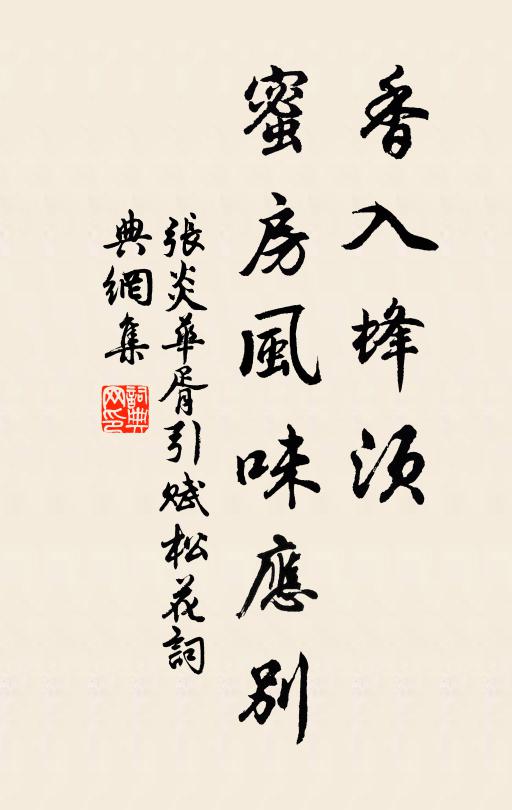 香入蜂須
蜜房風味應別
張炎華胥引賦松花詞
典網集
詞典网印